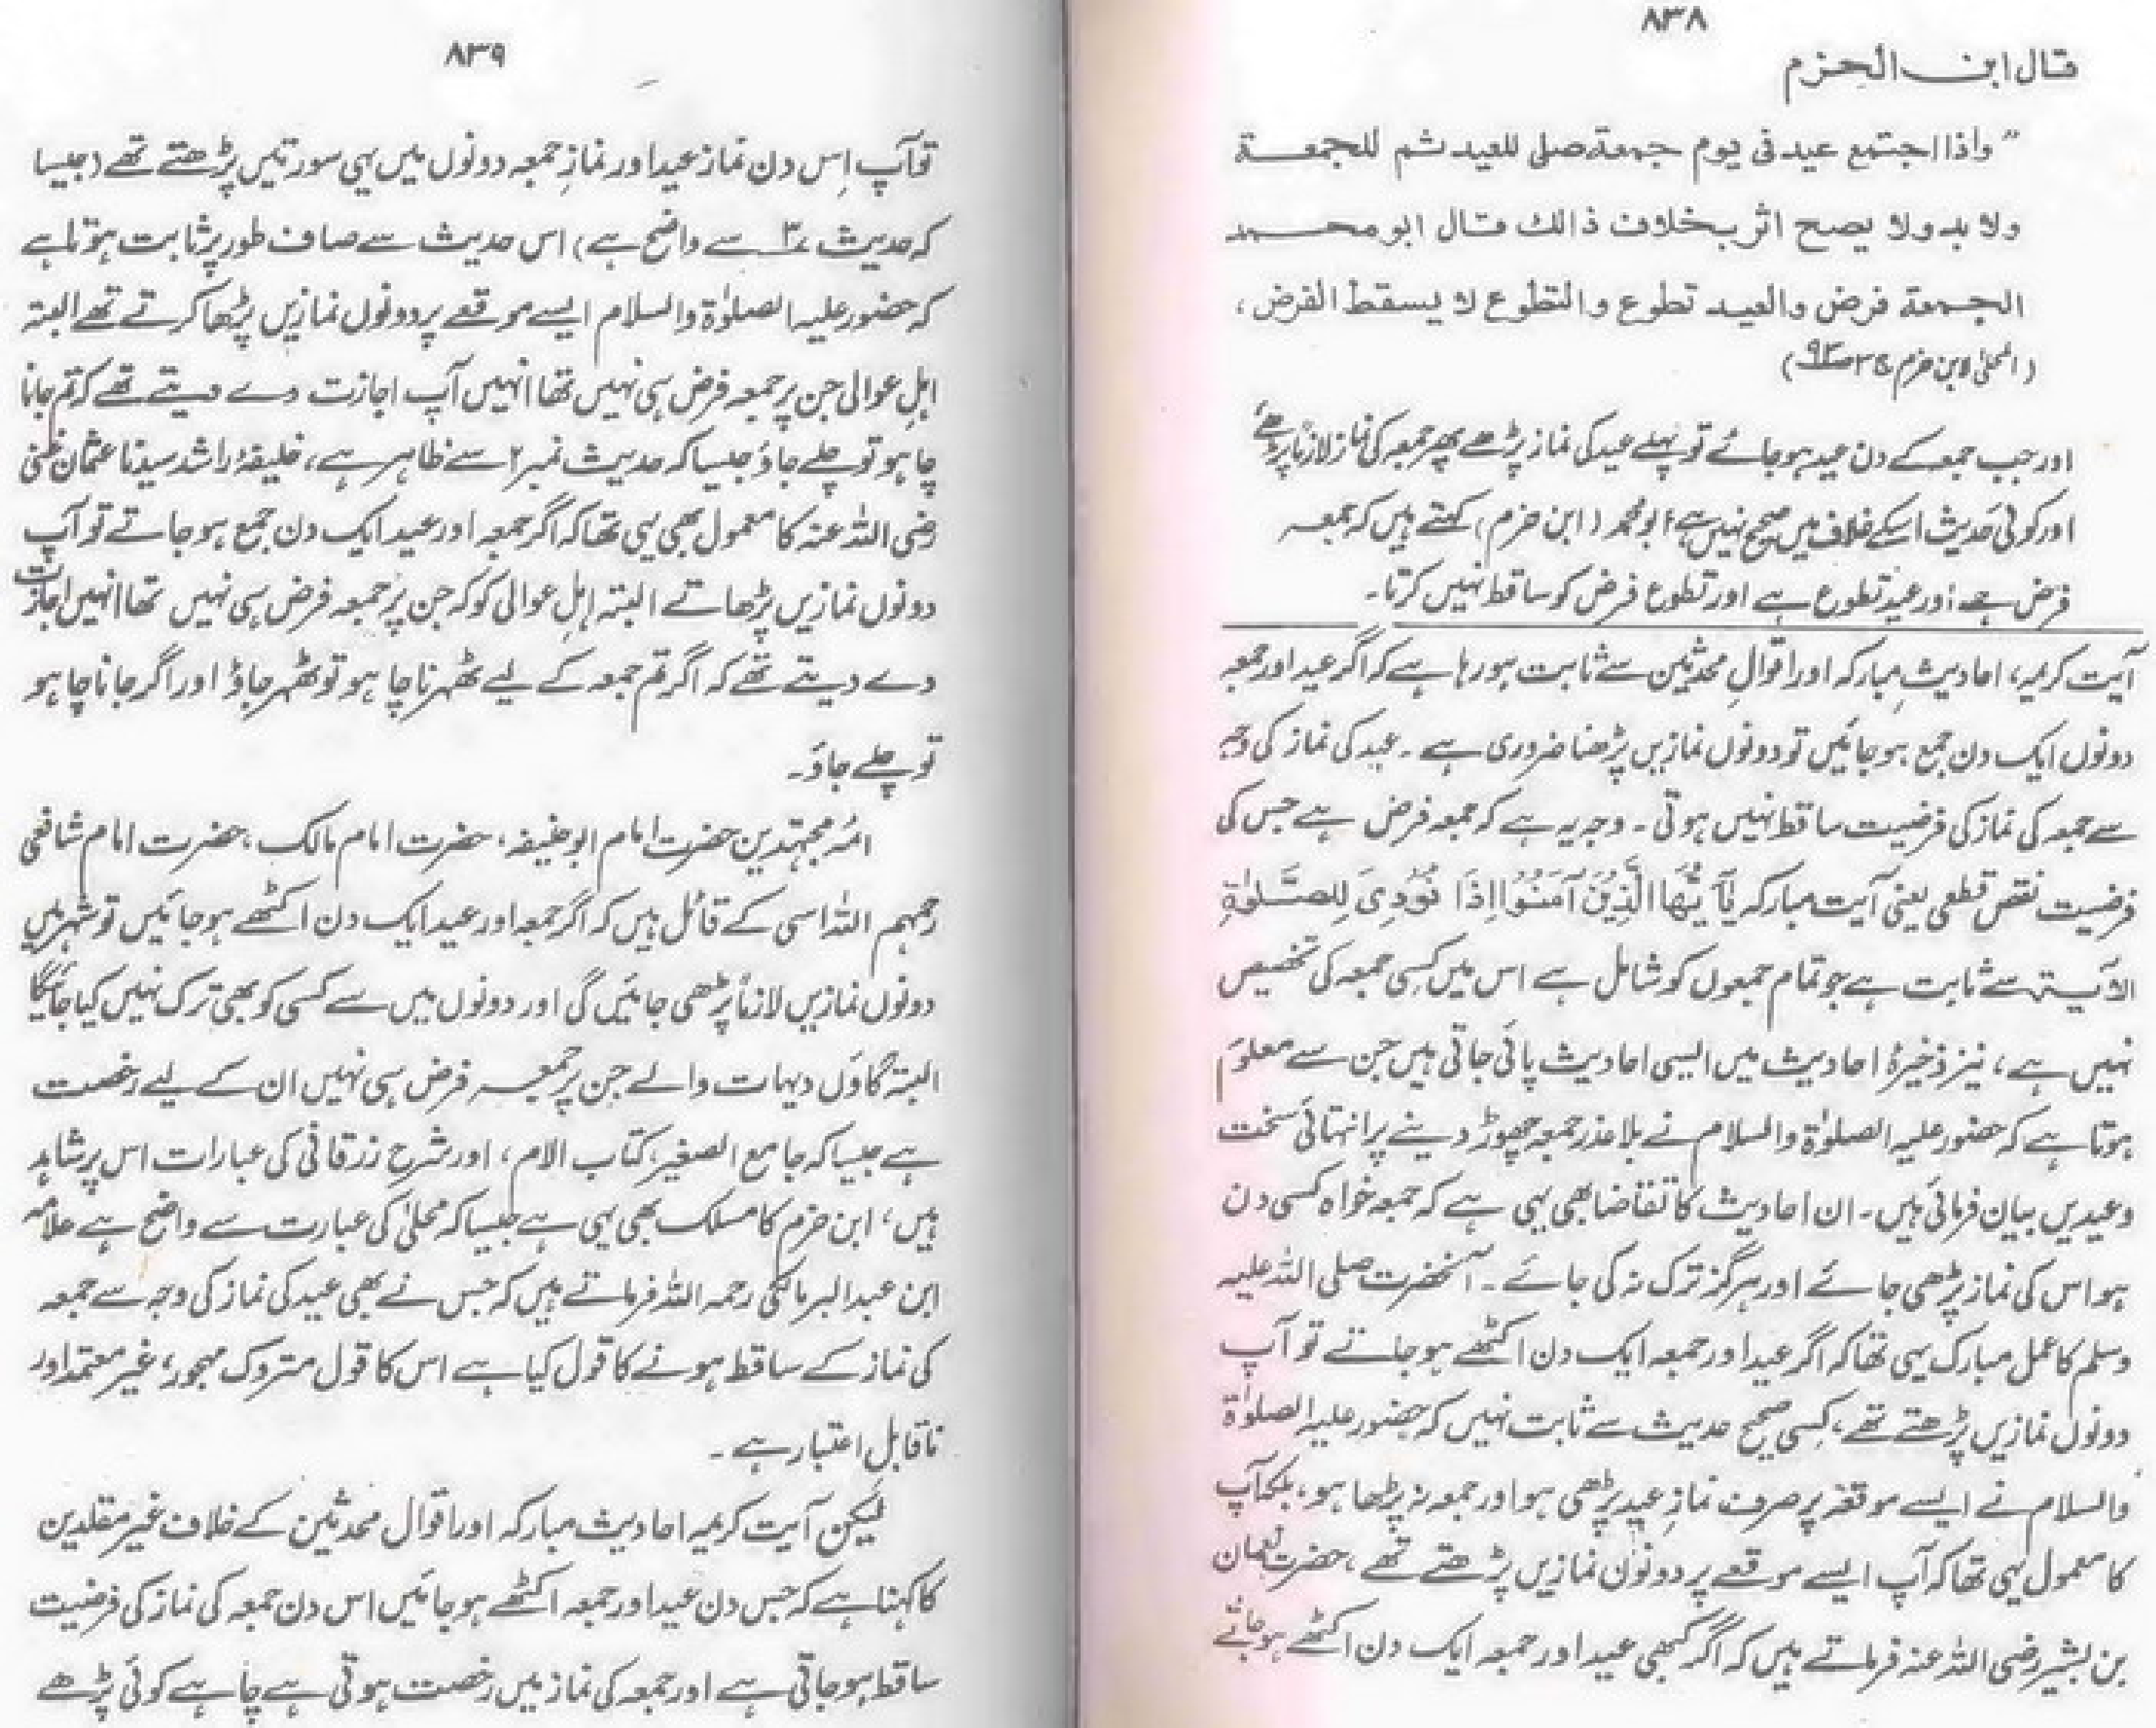 ۸۳۸
قال ابن الحزم
"واذا اجتمع عید فی یوم جمعة صلی للعید ثم للجمعة
ولا بد ولا یصح اثر بخلاف ذالك قال ابو محمد
الجمعة فرض والعید تطوع والتطوع لا یسقط الفرض،
(المحلیٰ لابن حزم ج۳ ص۳۰۳)
اور جب جمعہ کے دن عید ہو جائے تو پہلے عید کی نماز پڑھے پھر جمعہ کی نماز لازماً پڑھے
اور کوئی حدیث اسکے خلاف میں صحیح نہیں ہے ابو محمد (ابن حزم) کہتے ہیں کہ جمعہ
فرض ہے اور عید تطوع ہے اور تطوع فرض کو ساقط نہیں کرتا۔
آیت کریمہ، احادیثِ مبارکہ اور اقوالِ محدثین سے ثابت ہو رہا ہے کہ اگر عید اور جمعہ
دونوں ایک دن جمع ہو جائیں تو دونوں نمازیں پڑھنا ضروری ہے۔ عید کی نماز کی وجہ
سے جمعہ کی نماز کی فرضیت ساقط نہیں ہوتی۔ وجہ یہ ہے کہ جمعہ فرض ہے جس کی
فرضیت نصِ قطعی یعنی آیت مبارکہ یٰٓاَیُّھَا الَّذِیْنَ آمَنُوْا اِذَا نُوْدِیَ لِلصَّلٰوةِ
الآیۃ سے ثابت ہے جو تمام جمعوں کو شامل ہے اس میں کسی جمعہ کی تخصیص
نہیں ہے، نیز ذخیرۂ احادیث میں ایسی احادیث پائی جاتی ہیں جن سے معلوم
ہوتا ہے کہ حضور علیہ الصلوٰۃ والسلام نے بلا عذر جمعہ چھوڑ دینے پر انتہائی سخت
وعیدیں بیان فرمائی ہیں۔ ان احادیث کا تقاضا بھی یہی ہے کہ جمعہ خواہ کسی دن
ہو اس کی نماز پڑھی جائے اور ہرگز ترک نہ کی جائے۔ آنحضرت صلی اللہ علیہ
وسلم کا عمل مبارک یہی تھا کہ اگر عید اور جمعہ ایک دن اکٹھے ہو جاتے تو آپ
دونوں نمازیں پڑھتے تھے، کسی صحیح حدیث سے ثابت نہیں کہ حضور علیہ الصلوٰۃ
والسلام نے ایسے موقعہ پر صرف نمازِ عید پڑھی ہو اور جمعہ نہ پڑھا ہو، بلکہ آپ
کا معمول یہی تھا کہ آپ ایسے موقعے پر دونوں نمازیں پڑھتے تھے، حضرت نعمان
بن بشیر رضی اللہ عنہ فرماتے ہیں کہ اگر کبھی عید اور جمعہ ایک دن اکٹھے ہو جاتے
۸۳۹
تو آپ اِس دن نماز عید اور نمازِ جمعہ دونوں میں یہی سورتیں پڑھتے تھے (جیسا
کہ حدیث ۳ سے واضح ہے) اس حدیث سے صاف طور پر ثابت ہوتا ہے
کہ حضور علیہ الصلوٰۃ والسلام ایسے موقعے پر دونوں نمازیں پڑھا کرتے تھے البتہ
اہلِ عوالی جن پر جمعہ فرض ہی نہیں تھا انہیں آپ اجازت دے دیتے تھے کہ تم جانا
چاہو تو چلے جاؤ جیسا کہ حدیث نمبر ۲ سے ظاہر ہے، خلیفۂ راشد سیدنا عثمان غنی
رضی اللہ عنہ کا معمول بھی یہی تھا کہ اگر جمعہ اور عید ایک دن جمع ہو جاتے تو آپ
دونوں نمازیں پڑھاتے البتہ اہلِ عوالی کو کہ جن پر جمعہ فرض ہی نہیں تھا انہیں اجازت
دے دیتے تھے کہ اگر تم جمعہ کے لیے ٹھہرنا چاہو تو ٹھہر جاؤ اور اگر جانا چاہو
تو چلے جاؤ۔
ائمہ مجتہدین حضرت امام ابو حنیفہ، حضرت امام مالک، حضرت امام شافعی
رحمہم اللہ اسی کے قائل ہیں کہ اگر جمعہ اور عید ایک دن اکٹھے ہو جائیں تو شہر میں
دونوں نمازیں لازماً پڑھی جائیں گی اور دونوں میں سے کسی کو بھی ترک نہیں کیا جائیگا
البتہ گاؤں دیہات والے جن پر جمعہ فرض ہی نہیں ان کے لیے رخصت
ہے جیسا کہ جامع الصغیر، کتاب الام، اور شرح زرقانی کی عبارات اس پر شاہد
ہیں، ابن حزم کا مسلک بھی یہی ہے جیسا کہ محلیٰ کی عبارت سے واضح ہے علامہ
ابن عبدالبر مالکی رحمہ اللہ فرماتے ہیں کہ جس نے بھی عید کی نماز کی وجہ سے جمعہ
کی نماز کے ساقط ہونے کا قول کیا ہے اس کا قول متروک مہجور، غیر معتمد اور
ناقابلِ اعتبار ہے۔
لیکن آیت کریمہ احادیث مبارکہ اور اقوال محدثین کے خلاف غیر مقلدین
کا کہنا ہے کہ جس دن عید اور جمعہ اکٹھے ہو جائیں اس دن جمعہ کی نماز کی فرضیت
ساقط ہو جاتی ہے اور جمعہ کی نماز میں رخصت ہوتی ہے چاہے کوئی پڑھے